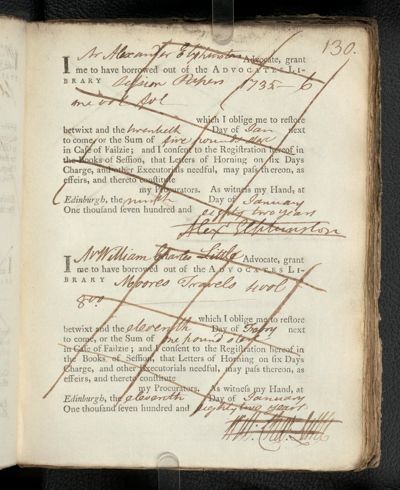 130.
I Mr Alexander Elphinston Advocate, grant
me to have borrowed out of the ADVOCATES LI-
BRARY Session Papers 1735-6
one vol. fol.
which I oblige me to restore
betwixt and the twentieth Day of Jan. next
to come, or the Sum of five pounds
in Case of Failzie; and I consent to the Registration hereof in
the Books of Session, that Letters of Horning on six Days
Charge, and other Executorials needful, may pass thereon, as
effeirs, and thereto constitute
my Procurators. As witness my Hand, at
Edinburgh, the ninth Day of January
One thousand seven hundred and eighty two years
Alexr Elphinston
I Mr William Charles Little Advocate, grant
me to have borrowed out of the ADVOCATES LI-
BRARY Moores Travels vol
8vo.
which I oblige me to restore
betwixt and the eleventh Day of next
to come, or the Sum of one pound
in Case of Failzie; and I consent to the Registration hereof in
the Books of Session, that Letters of Horning on six Days
Charge, and other Executorials needful, may pass thereon, as
effeirs, and thereto constitute
my Procurators. As witness my Hand, at
Edinburgh, the eleventh Day of January
One thousand seven hundred and eighty two years